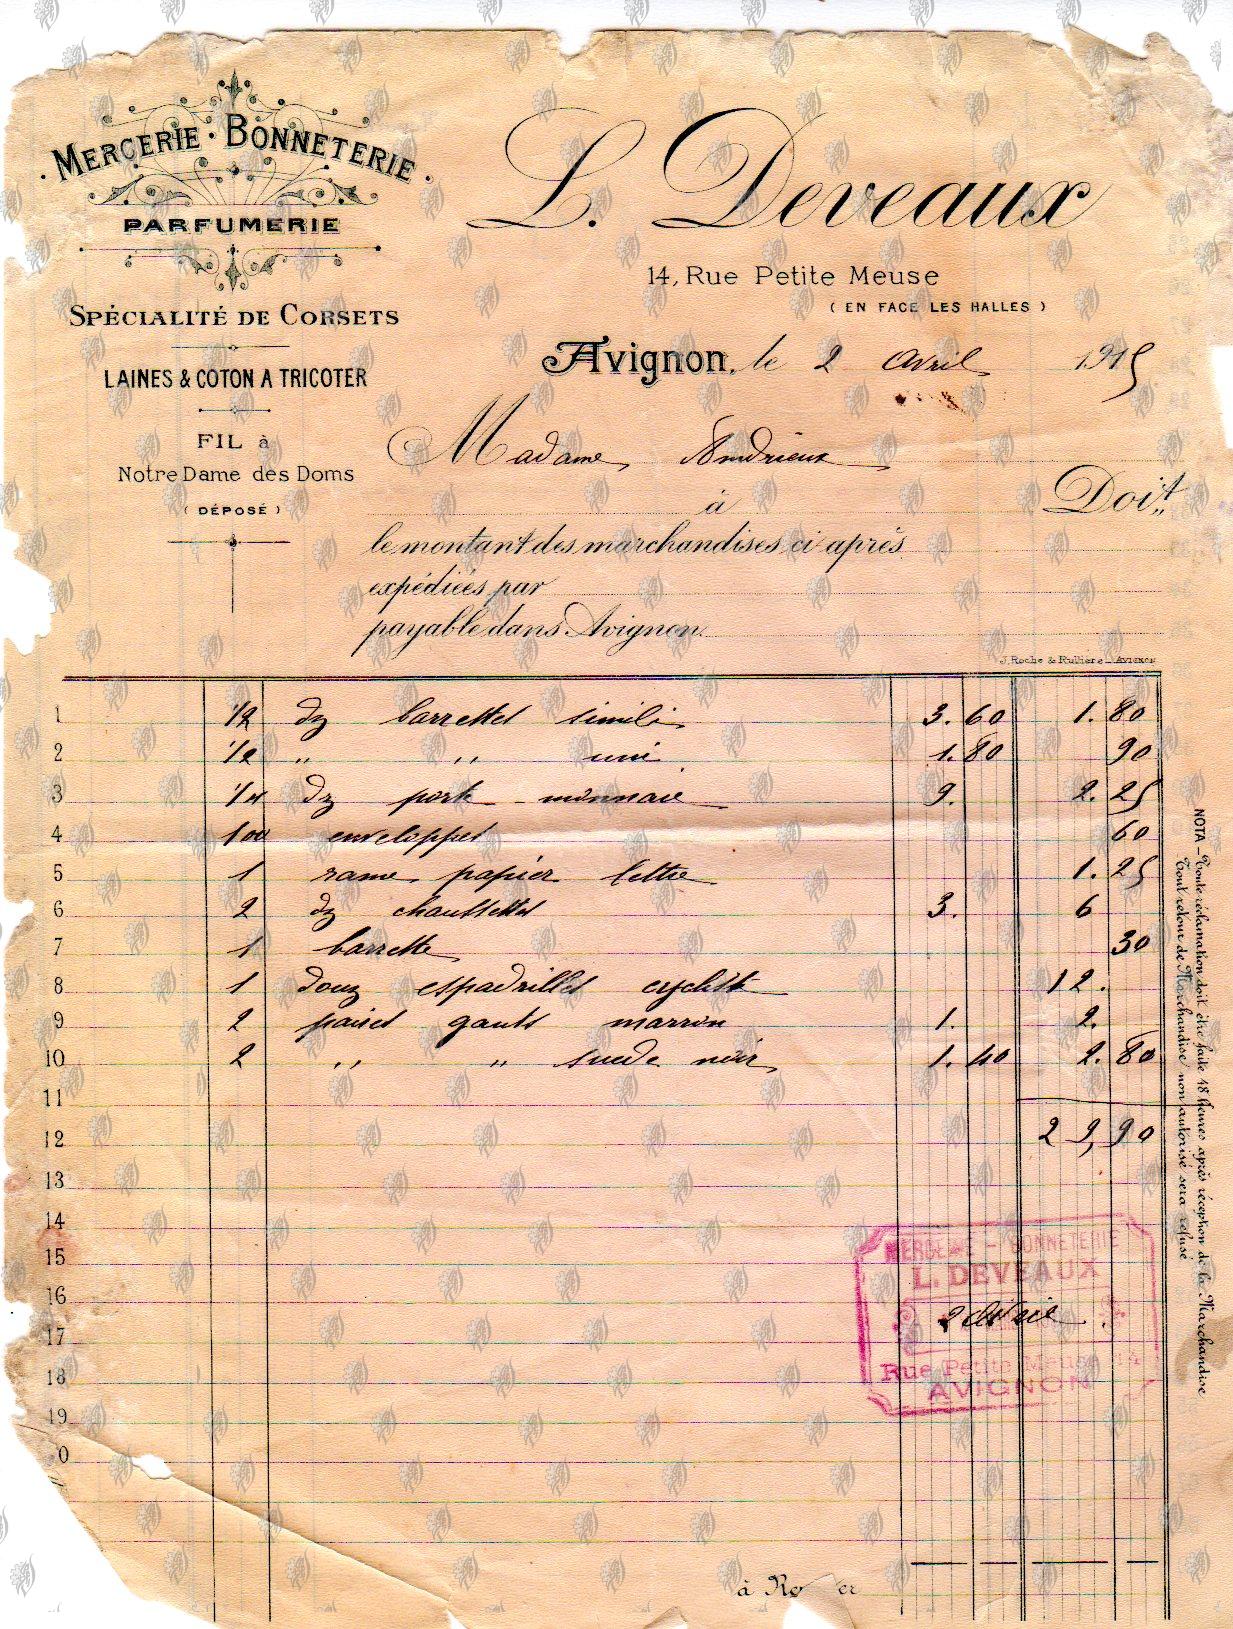 MERCERIE · BONNETERIE
PARFUMERIE
SPÉCIALITÉ DE CORSETS
LAINES & COTON A TRICOTER
FIL à
Notre Dame des Doms
(DÉPOSÉ)
L. Deveaux
14, Rue Petite Meuse
(EN FACE LES HALLES)
Avignon, le 2 Avril 1915
Madame Andrieux
à Doit
le montant des marchandises ci après
expédiées par
payable dans Avignon.
J. Roche & Rullière _ AVIGNON
1 1/2 dz barrettes simili 3.60 1.80
2 1/2 " " uni 1.80 90
3 1/4 dz porte-monnaie 9. 2.25
4 100 enveloppes 60
5 1 rame papier lettre 1.25
6 2 dz chaussettes 3. 6
7 1 barrette 30
8 1 douz espadrilles cycliste 12.
9 2 paires gants marron 1. 2.
10 2 " " suede noir 1.40 2.80
11
12 29,90
13
14
15
16
17
18
19
0
MERCERIE - BONNETERIE
L. DEVEAUX
2 Avril
Rue Petite Meuse 14
AVIGNON
NOTA _ Toute réclamation doit être faite 48 heures après réception de la Marchandise
Tout retour de Marchandise non autorisé sera refusé